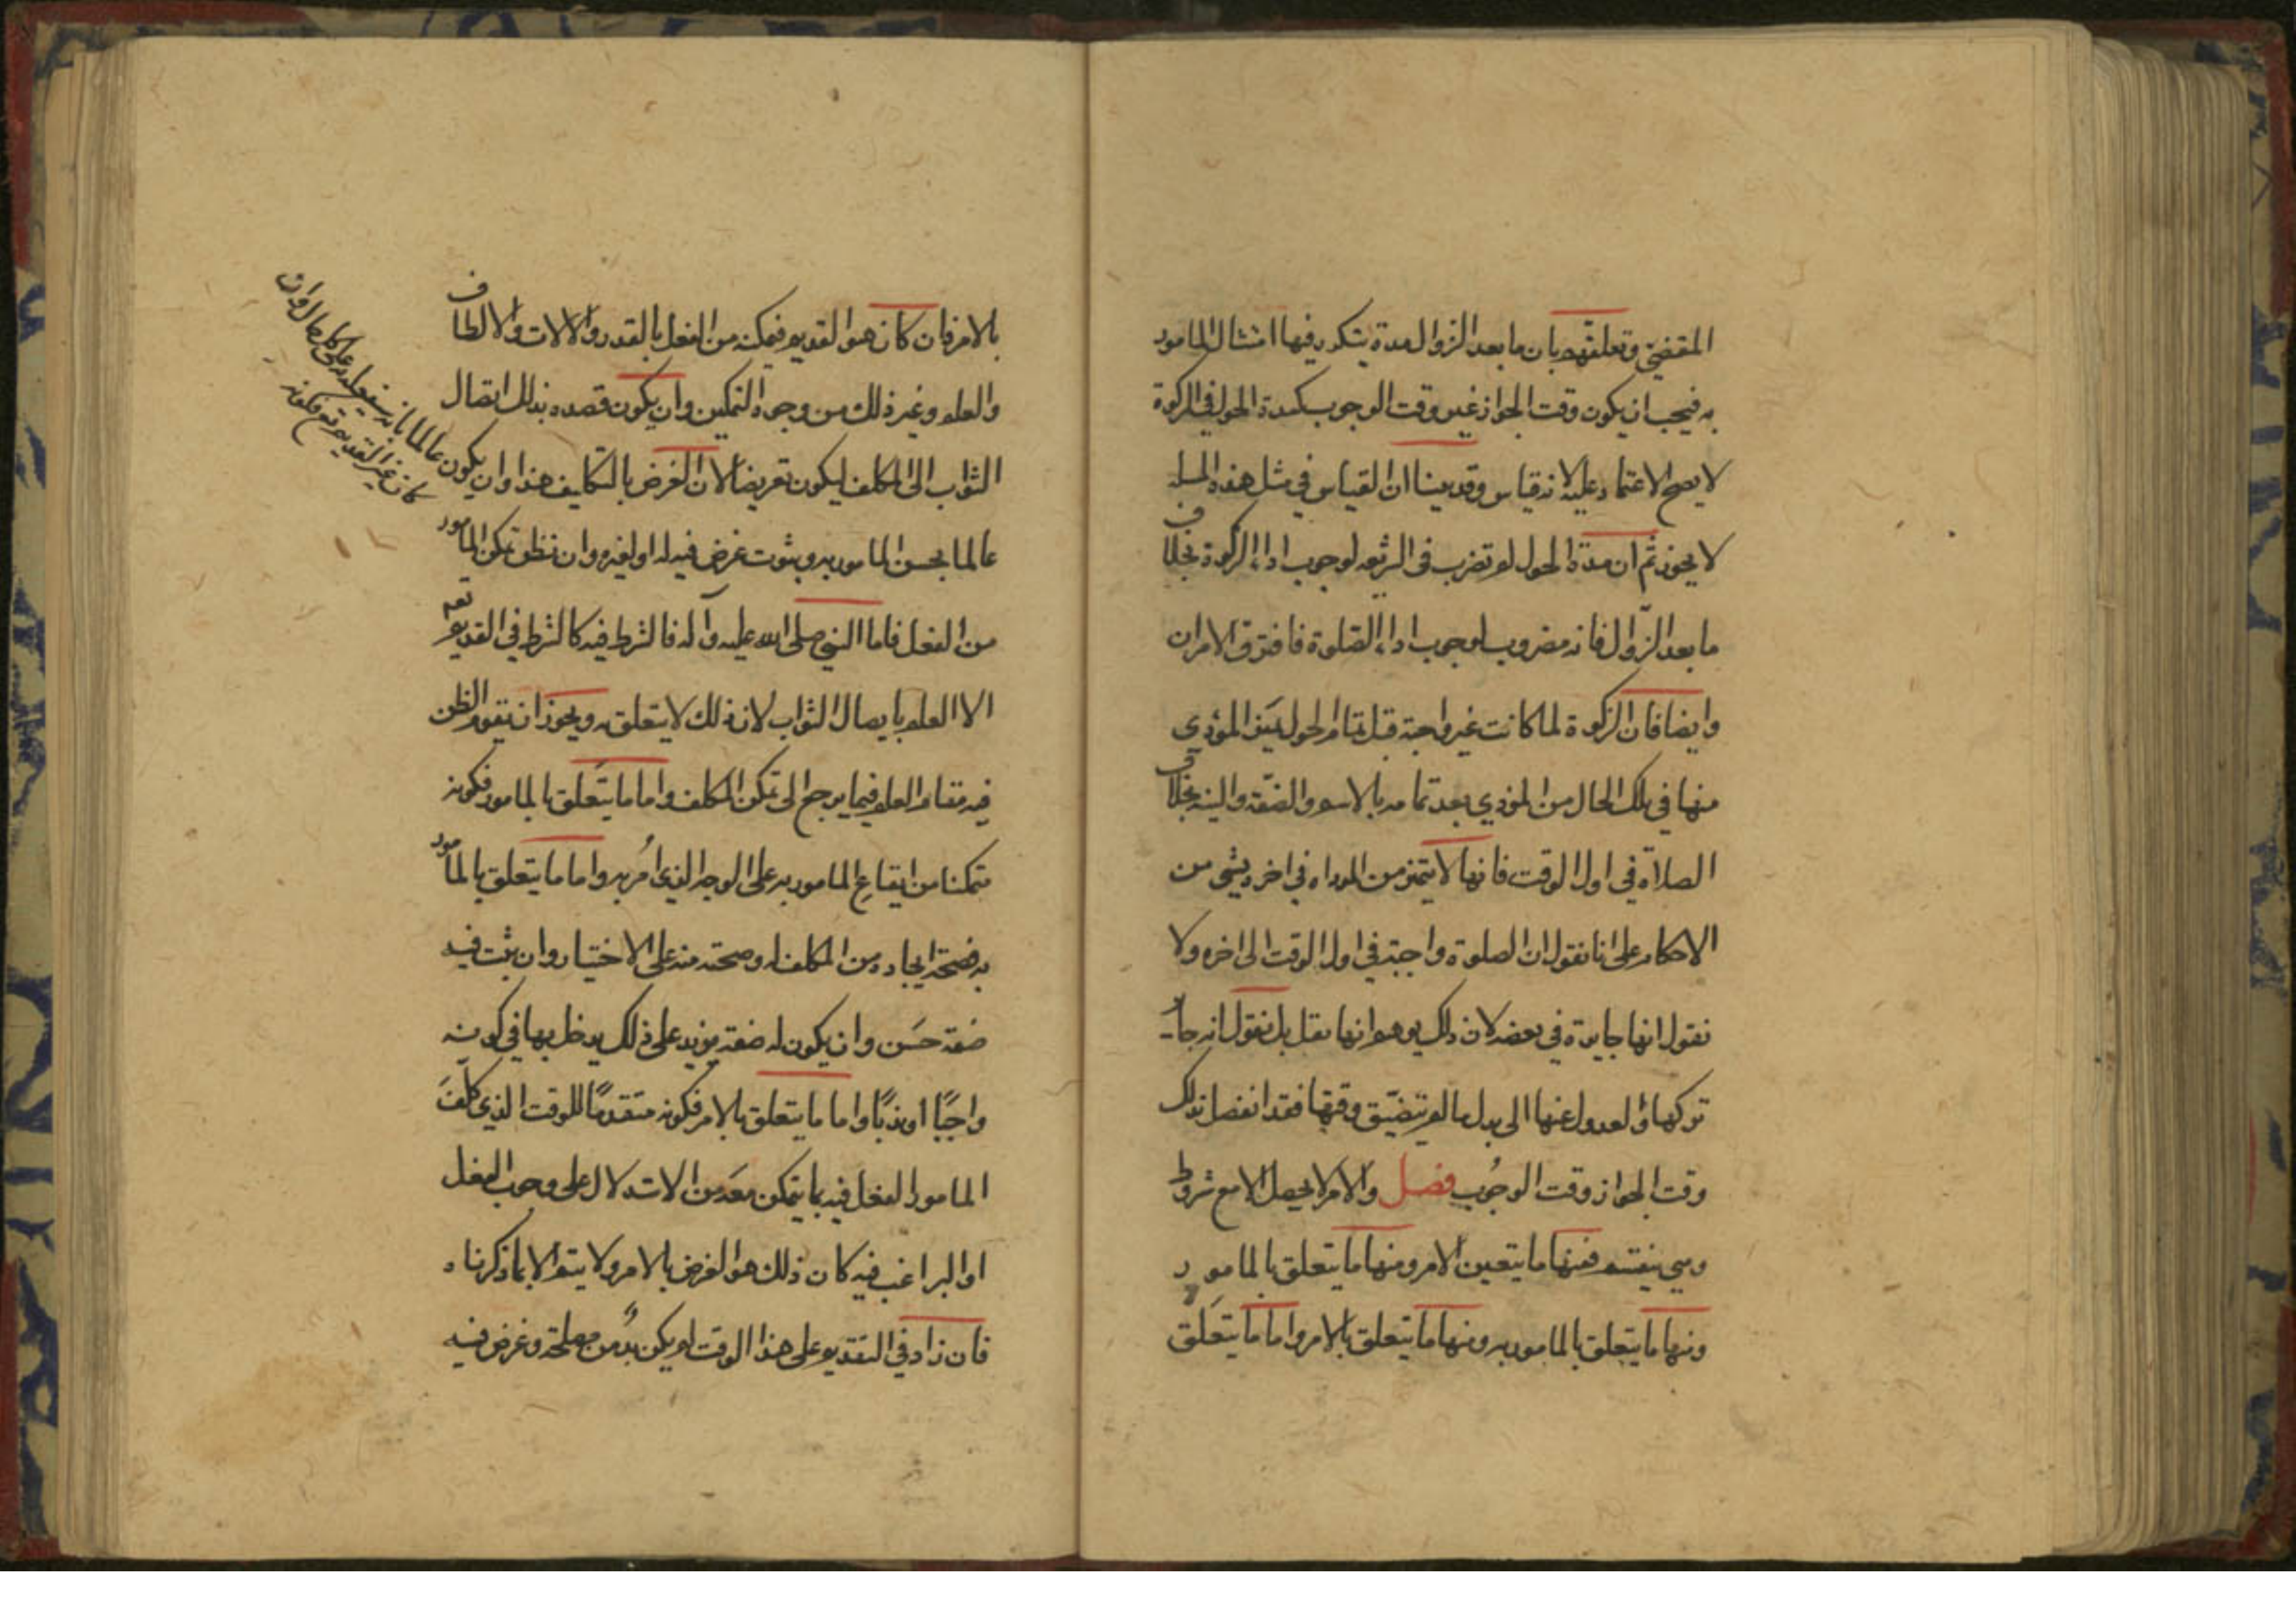 المقتضي وتعلقهم بان ما بعد الزوال مدة يتكرر فيها امتثال المامور
به فيجب ان يكون وقت الجواز غير وقت الوجوب كمدة الحول في الزكوة
لا يصح الاعتماد عليه لانه قياس وقد بينا ان القياس في مثل هذه المسله
لا يجوز ثم ان مدة الحول لم تضرب في الشرع لوجوب اداء الزكوة بخلاف
ما بعد الزوال فانه مضروب لوجوب اداء الصلوة فافترق الامران
وايضا فان الزكوة لما كانت غير واجبة قبل تمام الحول المؤدي
منها في تلك الحال من المؤدي بعد تمامه بالاسم والصفة والنية بخلاف
الصلاة في اول الوقت فانها لا تتميز من المؤداه في اخره بشي من
الاحكام على انا نقول ان الصلوة واجبة في اول الوقت الى اخره ولا
نقول انها جايزة في بعضه لان ذلك يوهم انها نفل بل نقول انه جاز
تركها والعدول عنها الى بدل ما لم يتضيق وقتها فقد انفصل بذلك
وقت الجواز وقت الوجوب فصل والامر لا يحصل الا مع شروط
وهي ينقسم فمنها ما يتعين الامر ومنها ما يتعلق بالمامور
ومنها ما يتعلق بالمامور به ومنها ما يتعلق بالامر واما ما يتعلق
بالامر فان كان هو القديم فيمكنه من الفعل بالقدر والالات والالطاف
والعلم وغير ذلك من وجوه التمكين وان يكون قصده بذلك اتصال
الثواب الى المكلف ليكون تعريضا لان الغرض بالتكليف هذا وان يكون عالما بانه سيفعله على كل حال وان
كان غير القديم تع فكونه
عالما بحسن المامور به وبثوت غرض فيه له او لغيره وان نظن تمكن المامور
من الفعل فاما النبي صلى الله عليه وآله فالشرط فيه كالشرط في القديم تعم
الا العلم بايصال الثواب لان ذلك لا يتعلق به ويجوز ان يقوم الظن
فيه مقام العلم فيما يرجع الى تمكن المكلف واما ما يتعلق بالمامور فكونه
متمكنا من ايقاع المامور به على الوجه الذي امر به واما ما يتعلق بالمامور
به فصحة ايجاده من المكلف له وصحته منه على الاختيار وان يثبت فيه
صفة حسن وان يكون له صفة يزيد على ذلك يدخل بها في كونه
واجبًا او ندبًا واما ما يتعلق بالامر فكونه متقدمًا للوقت الذي كلف
المامور الفعل فيه بما يتمكن معه من الاستدلال على وجوب الفعل
او البراغب فيه كان ذلك هو الغرض بالامر ولا يتم الا بما ذكرناه
فان زاد في التقديم على هذا الوقت لم يكن بد من مصلحة وغرض فيه